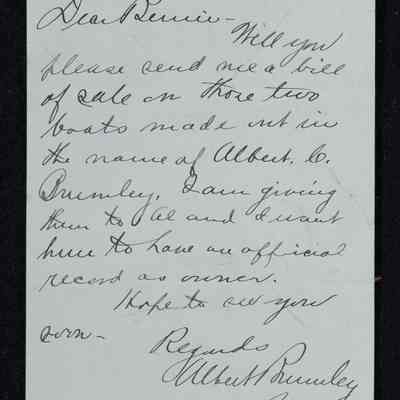 Dear Bernie -
Will you
please send me a bill
of sale on those two
boats made out in
the name of Albert. C.
Brumley. I am giving
them to Al and I want
him to have an official
record as owner.
Hope to see you
soon -
Regards
Albert Brumley